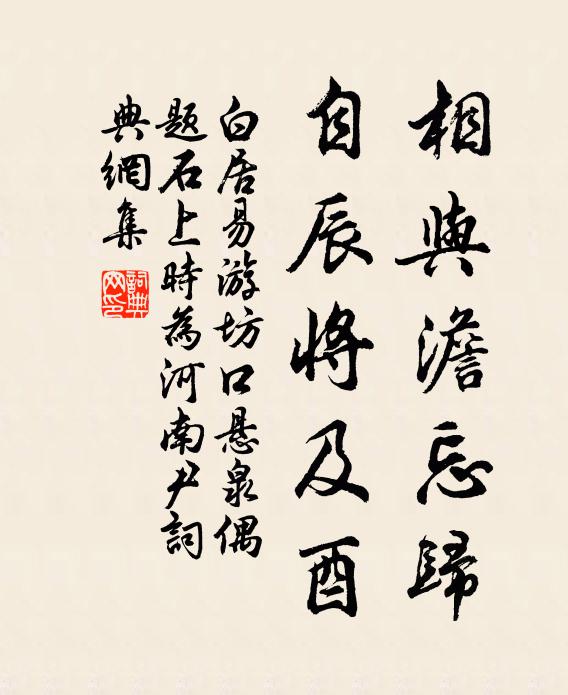 相與澹忘歸
自辰將及酉
白居易游坊口悬泉偶
题石上時為河南尹詞
典網集
詞典
网印